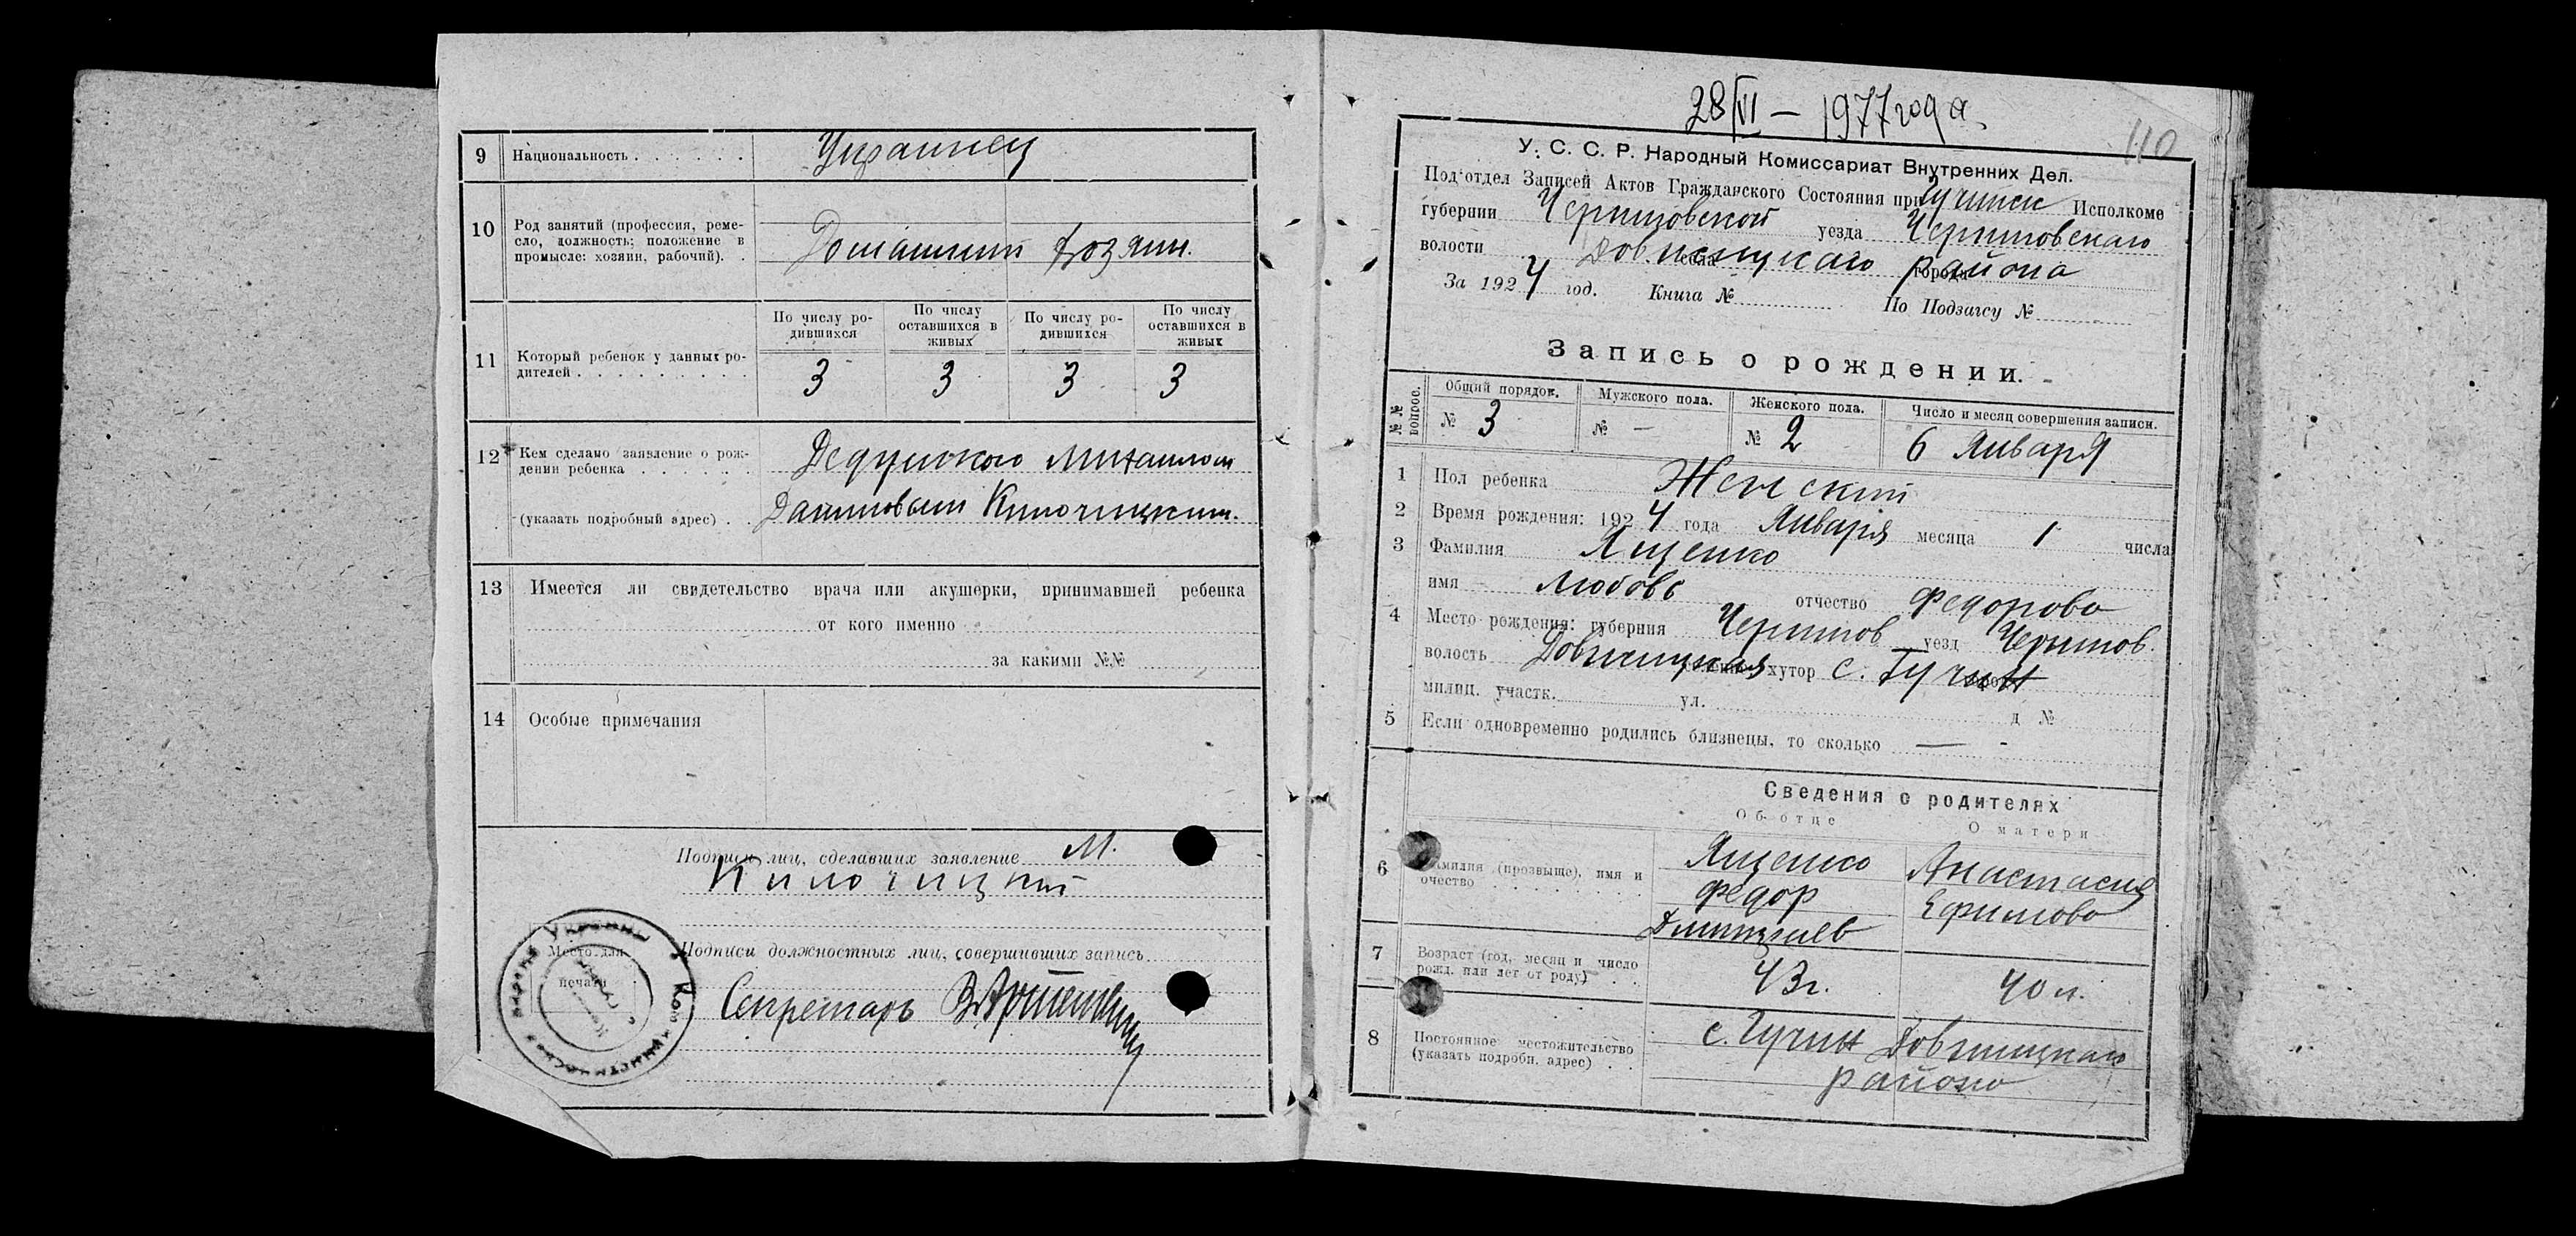 9 Национальность . . . . . . Украинец
10 Род занятий (профессия, реме-
сло, должность; положение в
промысле: хозяин, рабочий). .
Домашний хозяин.
По числу ро-
дившихся
По числу
оставшихся в
живых
По числу ро-
дившихся
По числу
оставшихся в
живых
11 Который ребенок у данных ро-
дителей . . . . . . . . .
3 3 3 3
12 Кем сделано заявление о рож-
дении ребенка . . . . . .
Дедушкою Михаилом
(указать подробный адрес) . .
13 Имеется ли свидетельство врача или акушерки, принимавшей ребенка
от кого именно
за какими №№
14 Особые примечания
Подписи лиц, сделавших заявление М.
Подписи должностных лиц, совершивших запись
Место для
печати
Секретарь
28/VI – 1977 года.
110
У. С. С. Р. Народный Комиссариат Внутренних Дел.
Под'отдел Записей Актов Гражданского Состояния при Исполкоме
губернии Черниговской уезда Черниговскаго
волости села города района
За 1924 год. Книга № По Подзагсу №
Запись о рождении.
№№ вопрос.
Общий порядок.
№ 3
Мужского пола.
№ –
Женского пола.
№ 2
Число и месяц совершения записи.
6 Января
1 Пол ребенка Женский
2 Время рождения: 1924 года Января месяца 1 числа
3 Фамилия Ященко
имя Любовь отчество Федорова
4 Место рождения: губерния Чернигов уезд Чернигов.
волость хутор с. Гучин
милиц. участк. ул. д №
5 Если одновременно родились близнецы, то сколько —
Сведения о родителях
Об отце
О матери
6 Фамилия (прозвище), имя и
отчество
Ященко
Федор
Дмитриев
Анастасия
Ефимова
7 Возраст (год, месяц и число
рожд. или лет от роду) . .
43 г.
40 л.
8 Постоянное местожительство
(указать подробн. адрес) . .
с. Гучин
района